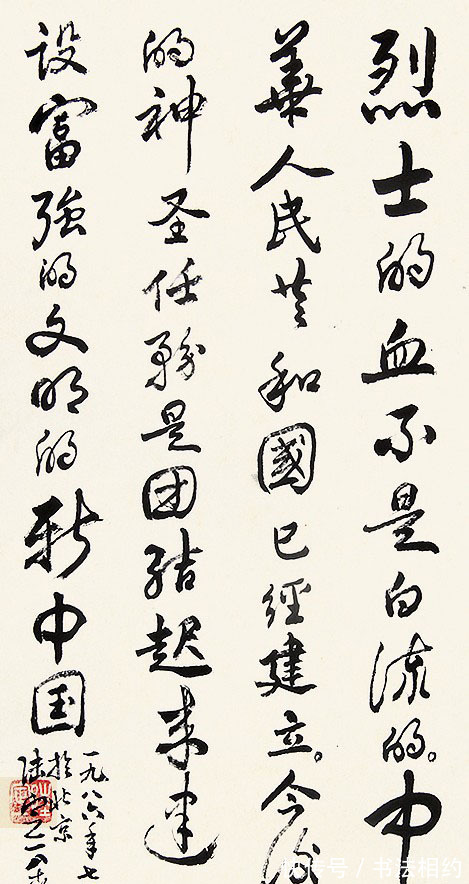 烈士的血不是白流的。中
華人民共和國已經建立。今後
的神圣任務是团結起来建
设富強的文明的新中国
一九八六年七
於北京
陆定一
快传号 / 书法相约